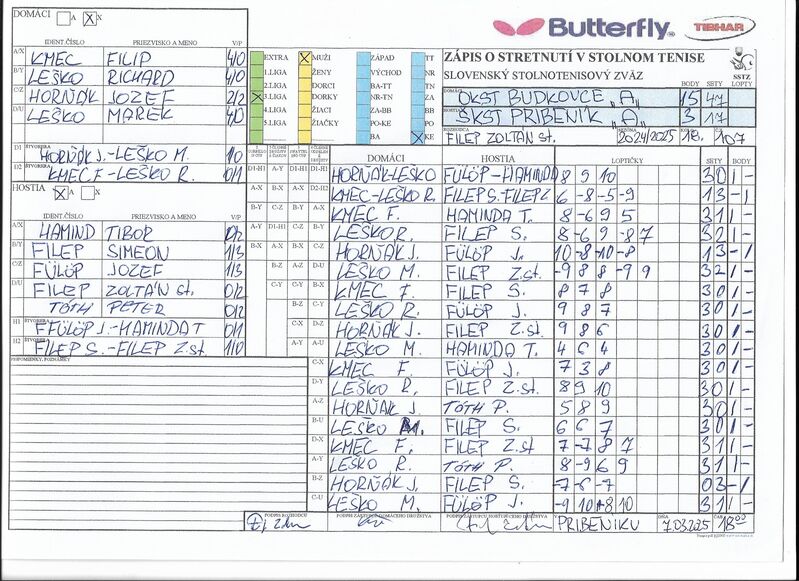 Butterfly TIBHAR
DOMÁCI A X
IDENT.ČÍSLO PRIEZVISKO A MENO V/P
A/X KMEC FILIP 4/0
B/Y LEŠKO RICHARD 4/0
C/Z HORŇÁK JOZEF 2/2
D/U LEŠKO MAREK 4/0
D1 ŠTVORHRA HORŇÁK J.-LEŠKO M. 1/0
D2 KMEC F.-LEŠKO R. 0/1
HOSTIA A X
IDENT.ČÍSLO PRIEZVISKO A MENO V/P
A/X HAMIND TIBOR 0/2
B/Y FILEP SIMEON 1/3
C/Z FÜLÖP JOZEF 1/3
D/U FILEP ZOLTÁN st. 0/2
TÓTH PETER 0/2
H1 ŠTVORHRA FFÜLÖP J.-HAMINDA T 0/1
H2 ŠTVORHRA FILEP S.-FILEP Z.st. 1/0
PRIPOMIENKY, POZNÁMKY
EXTRA MUŽI ZÁPAD TT
1.LIGA ŽENY VÝCHOD NR
2.LIGA DORCI BA-TT TN
3.LIGA DORKY NR-TN ZA
4.LIGA ŽIACI ZA-BB BB
5.LIGA ŽIAČKY PO-KE PO
BA KE
ZÁPIS O STRETNUTÍ V STOLNOM TENISE
SLOVENSKÝ STOLNOTENISOVÝ ZVÄZ
SSTZ
BODY SETY LOPTY
DOMÁCI OKST BUDKOVCE „A„ 15 47
HOSTIA ŠKST PRIBENÍK „A„ 3 17
ROZHODCA FILEP ZOLTÁN st. SEZÓNA 2024/2025 18.
DOMÁCI HOSTIA LOPTIČKY SETY BODY
D1-H1 HORŇÁK-LEŠKO FÜLÖP-HAMINDA 8 9 10 3 0 1 -
D2-H2 KMEC-LEŠKO R. FILEP S.-FILEP Z 6 -8 -5 -9 1 3 - 1
A-X KMEC F. HAMINDA T. 8 -6 9 5 3 1 1 -
B-Y LEŠKO R. FILEP S. 8 -6 9 -8 7 3 2 1 -
C-Z HORŇÁK J. FÜLÖP J. 10 -8 -10 -8 1 3 - 1
D-U LEŠKO M. FILEP Z.st -9 8 8 -9 9 3 2 1 -
KMEC F. FILEP S. 8 7 8 3 0 1 -
LEŠKO R. FÜLÖP J. 9 8 7 3 0 1 -
D-Z HORŇÁK J. FILEP Z.st 9 8 6 3 0 1 -
A-U LEŠKO M. HAMINDA T. 4 6 4 3 0 1 -
C-X KMEC F. FÜLÖP J. 7 3 8 3 0 1 -
D-Y LEŠKO R. FILEP Z.st 8 9 10 3 0 1 -
A-Z HORŇÁK J. TÓTH P. 5 8 9 3 0 1 -
B-U LEŠKO M. FILEP S. 6 6 7 3 0 1 -
D-X KMEC F. FILEP Z.st 7 -7 8 7 3 1 1 -
A-Y LEŠKO R. TÓTH P. 8 -9 6 9 3 1 1 -
B-Z HORŇÁK J. FILEP S. -7 -6 -7 0 3 - 1
C-U LEŠKO M. FÜLÖP J. -9 10 8 10 3 1 1 -
PODPIS ROZHODCU PODPIS ZÁSTUPCU DOMÁCEHO DRUŽSTVA PODPIS ZÁSTUPCU HOSŤUJÚCEHO DRUŽSTVA V PRIBENÍKU DŇA 7.03.2025 ČAS 18:00